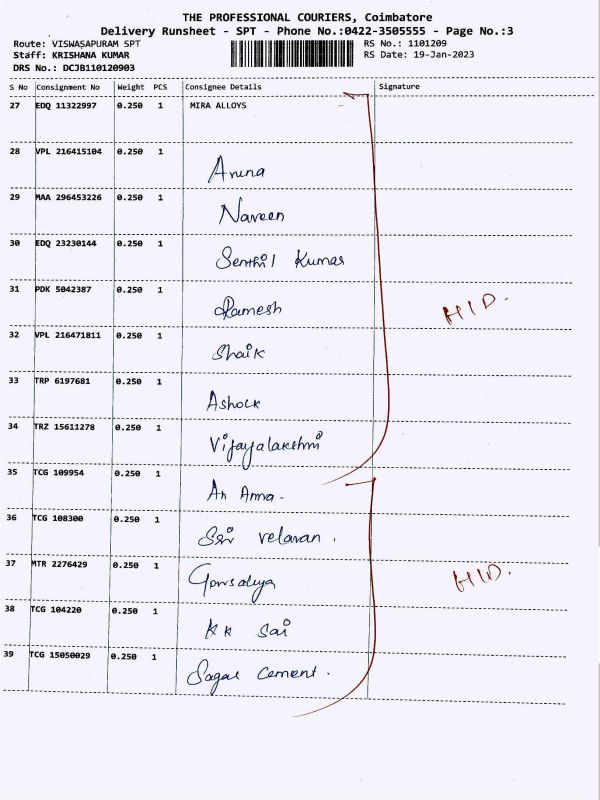 THE PROFESSIONAL COURIERS, Coimbatore
Delivery Runsheet - SPT - Phone No.:0422-3505555 - Page No.:3
Route: VISWASAPURAM SPT RS No.: 1101209
Staff: KRISHANA KUMAR RS Date: 19-Jan-2023
DRS No.: DCJB110120903
S No Consignment No Weight PCS Consignee Details Signature
27 EDQ 11322997 0.250 1 MIRA ALLOYS
28 VPL 216415104 0.250 1 Aruna
29 MAA 296453226 0.250 1 Naveen
30 EDQ 23230144 0.250 1 Senthil Kumar
31 PDK 5042387 0.250 1 Ramesh
HID.
32 VPL 216471811 0.250 1 Shaik
33 TRP 6197681 0.250 1 Ashock
34 TRZ 15611278 0.250 1 Vijayalakshmi
35 TCG 109954 0.250 1 An Anna-
36 TCG 108300 0.250 1 Sri velavan.
37 MTR 2276429 0.250 1
HID.
38 TCG 104220 0.250 1 KK Sai
39 TCG 15050029 0.250 1 Sagar Cement.